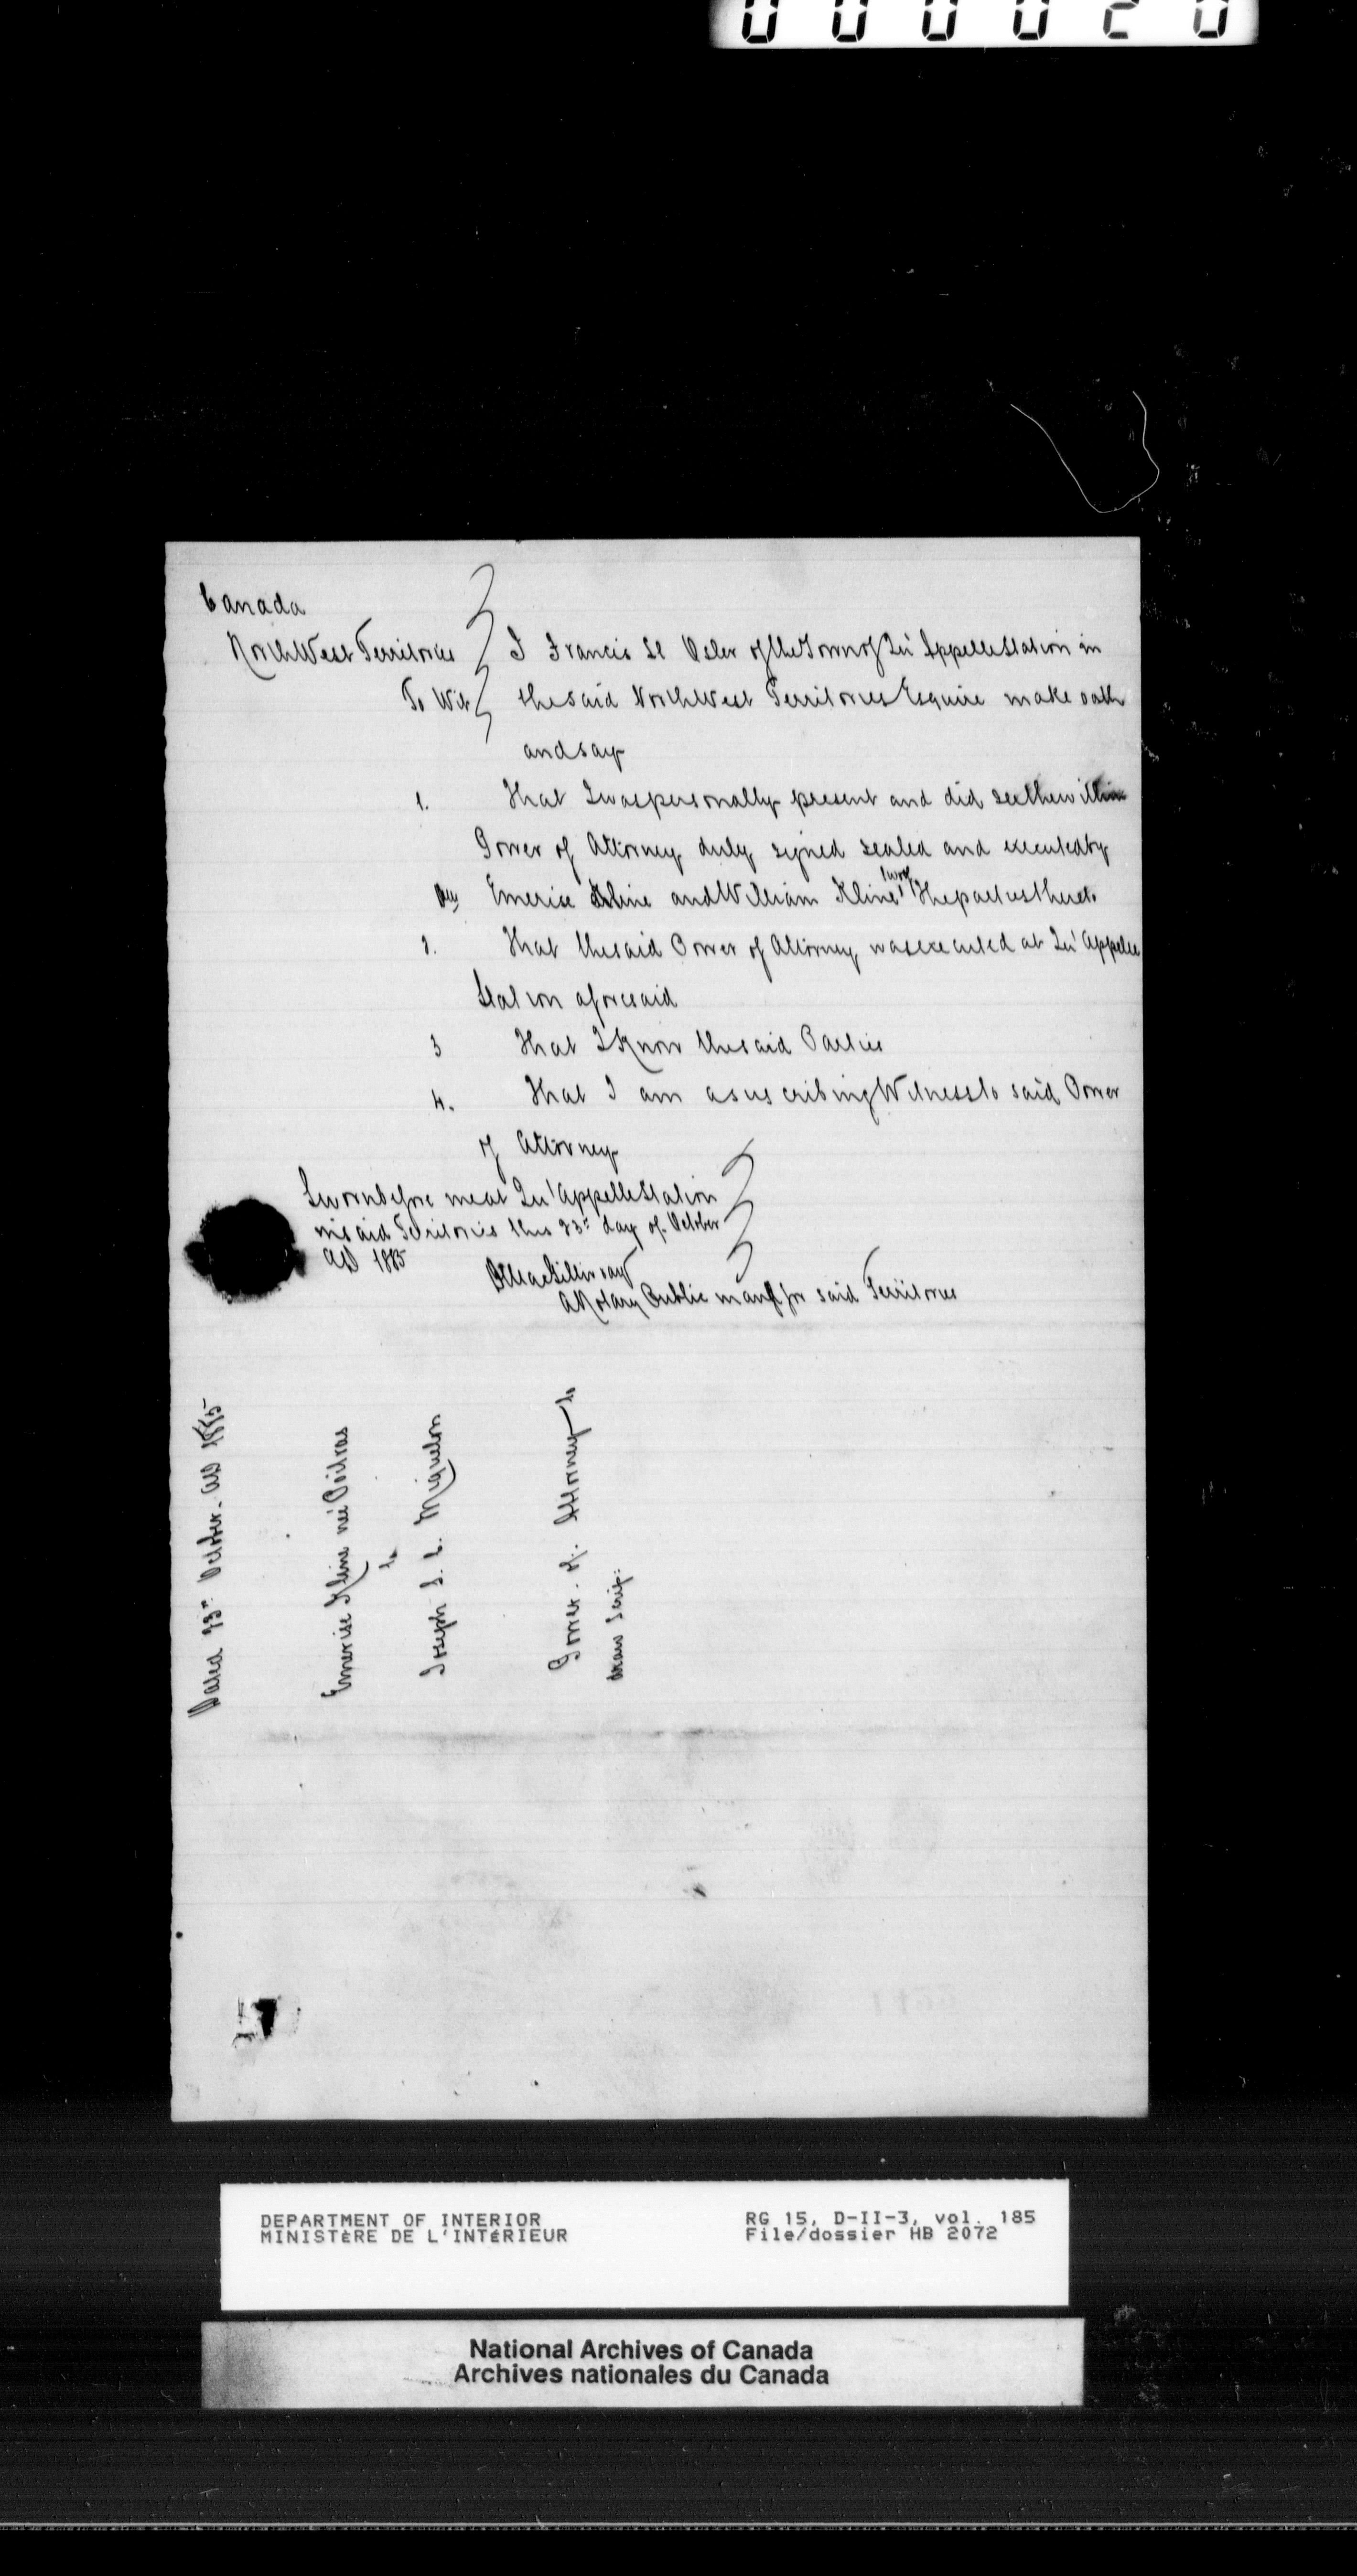 000020
Canada
North West Territories
To Wit
I Francis St Osler of the Town of Qu'Appelle Station in
the said North West Territories Esquire make oath
and say
1. That I was personally present and did see the within
Power of Attorney duly signed sealed and executed by
Emerise Kline and William Kline two of the parties thereto
2. That the said Power of Attorney was executed at Qu'Appelle
Station aforesaid
3 That I Know the said Parties
4. That I am a suscribing Witness to said Power
of Attorney
Sworn before me at Qu'Appelle Station
in said Territories this 23rd day of October
AD 1885
A Notary Public in and for said Territories
Dated 23rd October AD 1885
Emerise Kline née Poitras
to
Joseph L. C. Miquelon
Power of Attorney to
draw Scrip.
DEPARTMENT OF INTERIOR
MINISTÈRE DE L'INTÉRIEUR
RG 15, D-II-3, vol. 185
File/dossier HB 2072
National Archives of Canada
Archives nationales du Canada